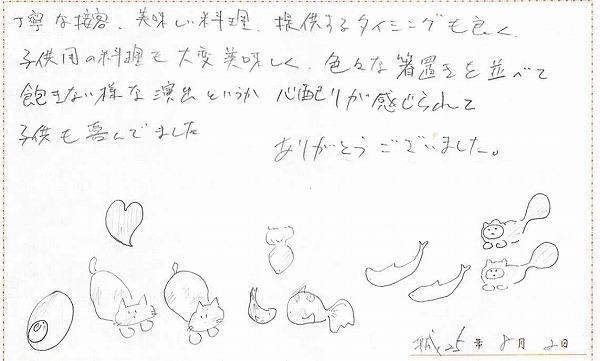 丁寧な接客、美味しい料理、提供するタイミングも良く、
子供用の料理も大変美味しく、色々な箸置きを並べて
飽きない様な演出というか 心配りが感じられて
子供も喜んでました
ありがとうございました。
平成25年8月2日